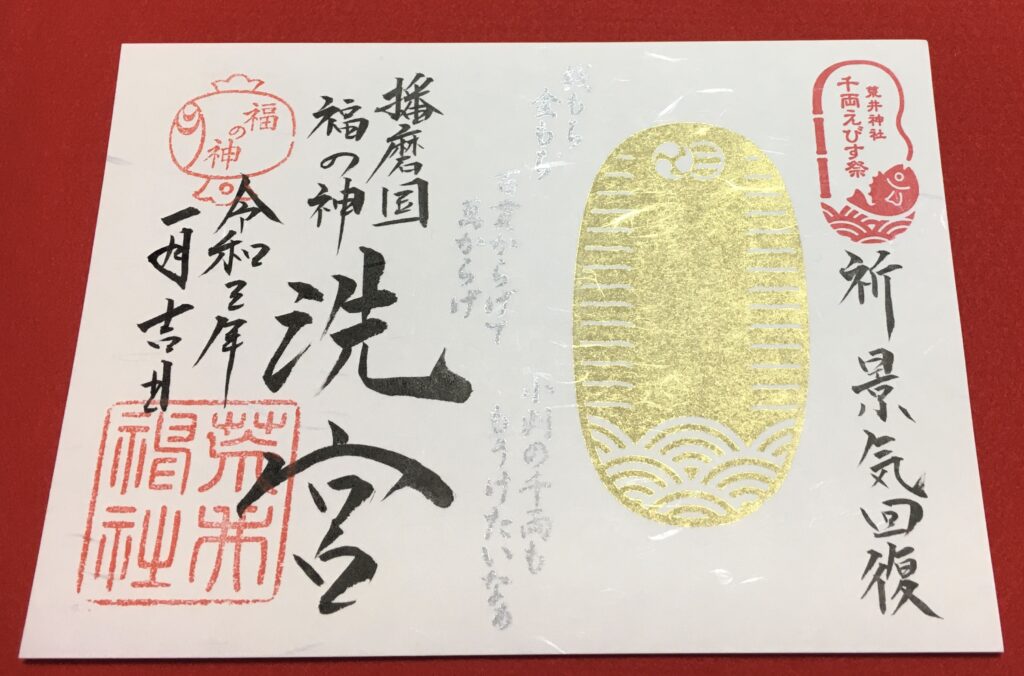 荒井神社
千両えびす祭
祈景気回復
金もち
からげて
からげ
小判の千両も
もうけたいなあ
播磨国
福の神
洗宮
令和三年
一月吉日
福の神
荒井神社